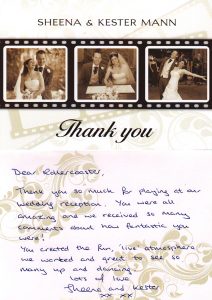 SHEENA & KESTER MANN
Thank you
Dear Rollercoaster,
Thank you so much for playing at our
wedding reception. You were all
amazing and we received so many
comments about how fantastic you
were!
You created the fun, 'live' atmosphere
we wanted and great to see so
many up and dancing.
Lots of love
Sheena and Kester
xx xx